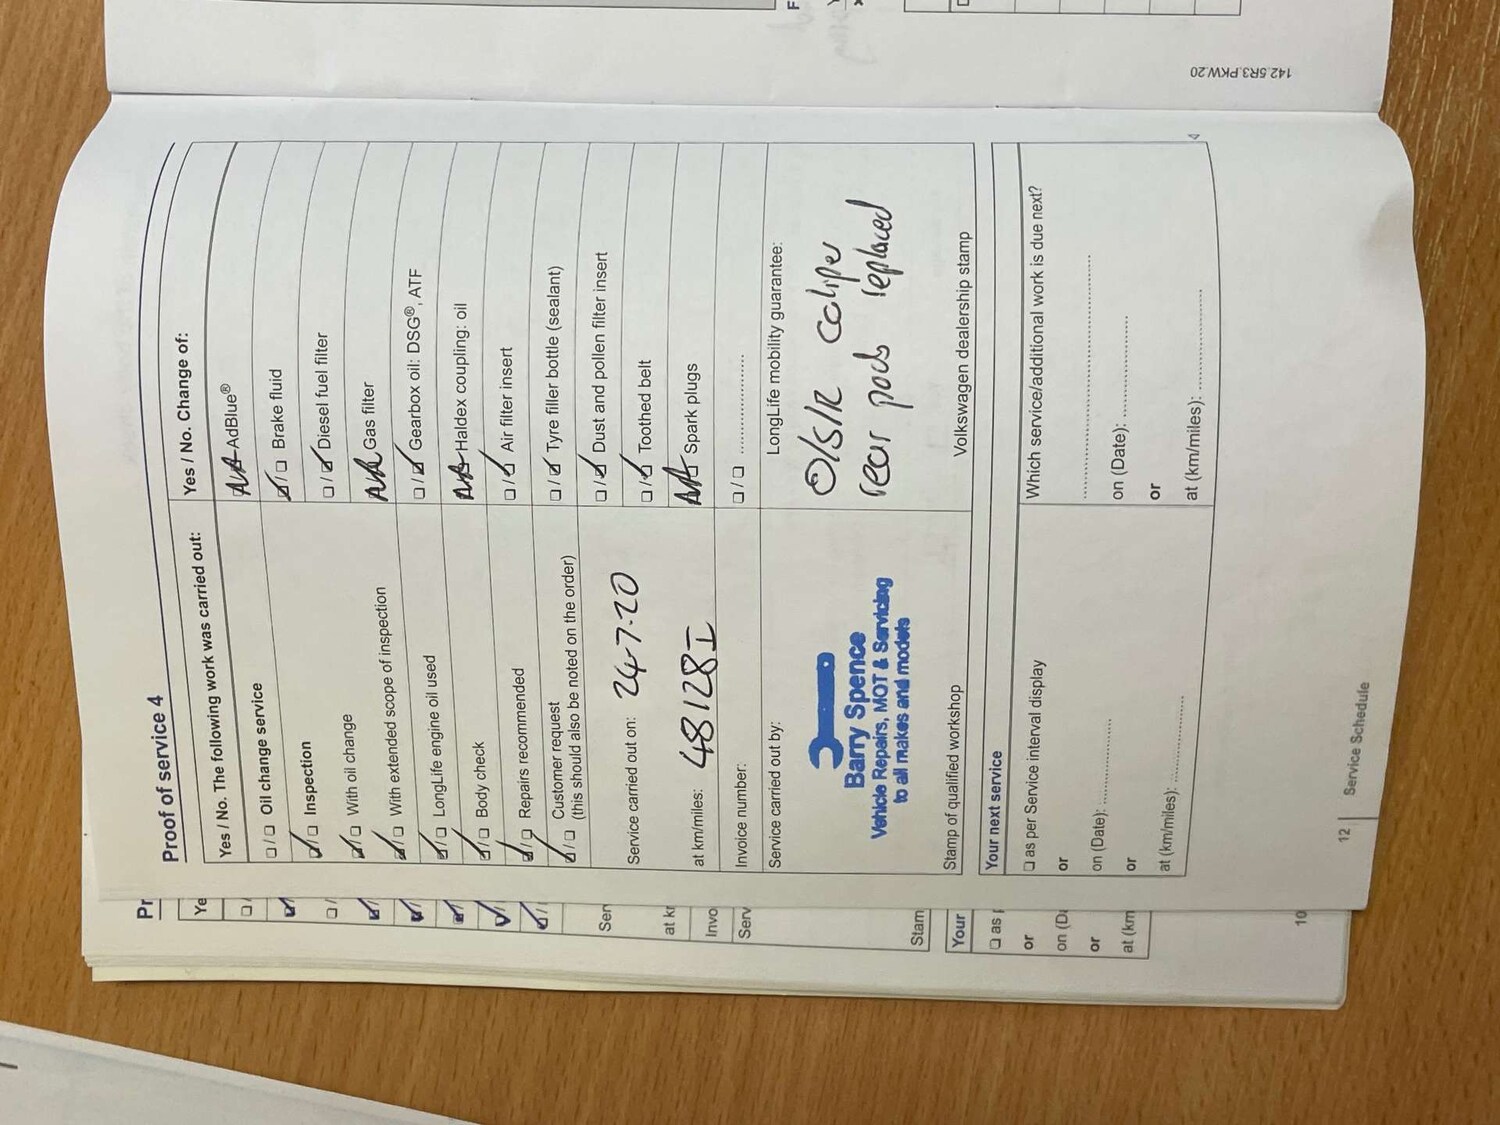 Proof of service 4
Yes / No. The following work was carried out:
☐/☐ Oil change service
☑/☐ Inspection
☑/☐ With oil change
☑/☐ With extended scope of inspection
☑/☐ LongLife engine oil used
☑/☐ Body check
☑/☐ Repairs recommended
☑/☐ Customer request
(this should also be noted on the order)
Service carried out on: 24-7-20
at km/miles: 48128
Invoice number:
Service carried out by:
Barry Spence
Vehicle Repairs, MOT & Servicing
to all makes and models
Stamp of qualified workshop
Yes / No. Change of:
AdBlue®
☑/☐ Brake fluid
☐/☑ Diesel fuel filter
Gas filter
☐/☑ Gearbox oil: DSG®, ATF
Haldex coupling: oil
☐/☑ Air filter insert
☐/☑ Tyre filler bottle (sealant)
☐/☑ Dust and pollen filter insert
☐/☑ Toothed belt
Spark plugs
☐/☐ ...................
LongLife mobility guarantee:
O/S/R calipe
rear pads replaced
Volkswagen dealership stamp
Your next service
☐ as per Service interval display
or
on (Date): ...................
or
at (km/miles): ...................
Which service/additional work is due next?
......................................................
on (Date): ......................
or
at (km/miles): ......................
12
Service Schedule
Pr
Ye
Ser
at kr
Invo
Serv
Stam
Your
☐ as
or
on (Da
or
at (km
10
142.5R3.PKW.20